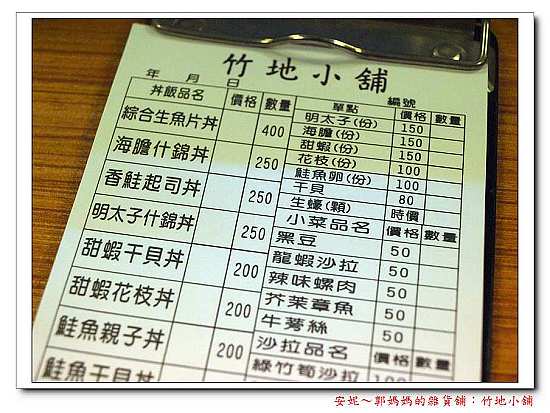 竹地小舖
年 月 日 編號
丼飯品名 價格 數量
綜合生魚片丼 400
海膽什錦丼 250
香鮭起司丼 250
明太子什錦丼 250
甜蝦干貝丼 200
甜蝦花枝丼 200
鮭魚親子丼 200
鮭魚干貝丼
單點 價格 數量
明太子(份) 150
海膽(份) 150
甜蝦(份) 150
花枝(份) 100
鮭魚卵(份) 100
干貝 80
生蠔(顆) 時價
小菜品名 價格 數量
黑豆 50
龍蝦沙拉 50
辣味螺肉 50
芥茉章魚 50
牛蒡絲 50
沙拉品名 價格 數量
綠竹筍沙拉 100
安妮～郭媽媽的雜貨舖：竹地小舖